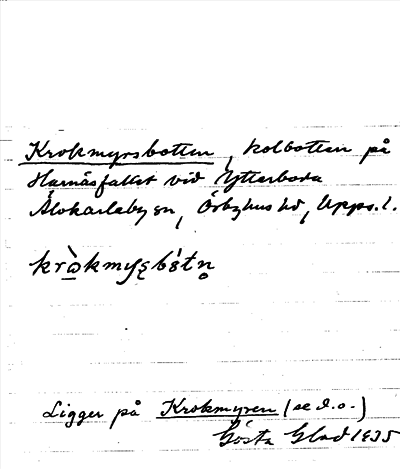 Krokmyrsbotten, kolbotten på
Harnäsfallet vid Ytterboda
Älvkarleby sn, Örbyhus hd, Upps. l.
Ligger på Krokmyren (se d.o.)
Gösta Glad 1935